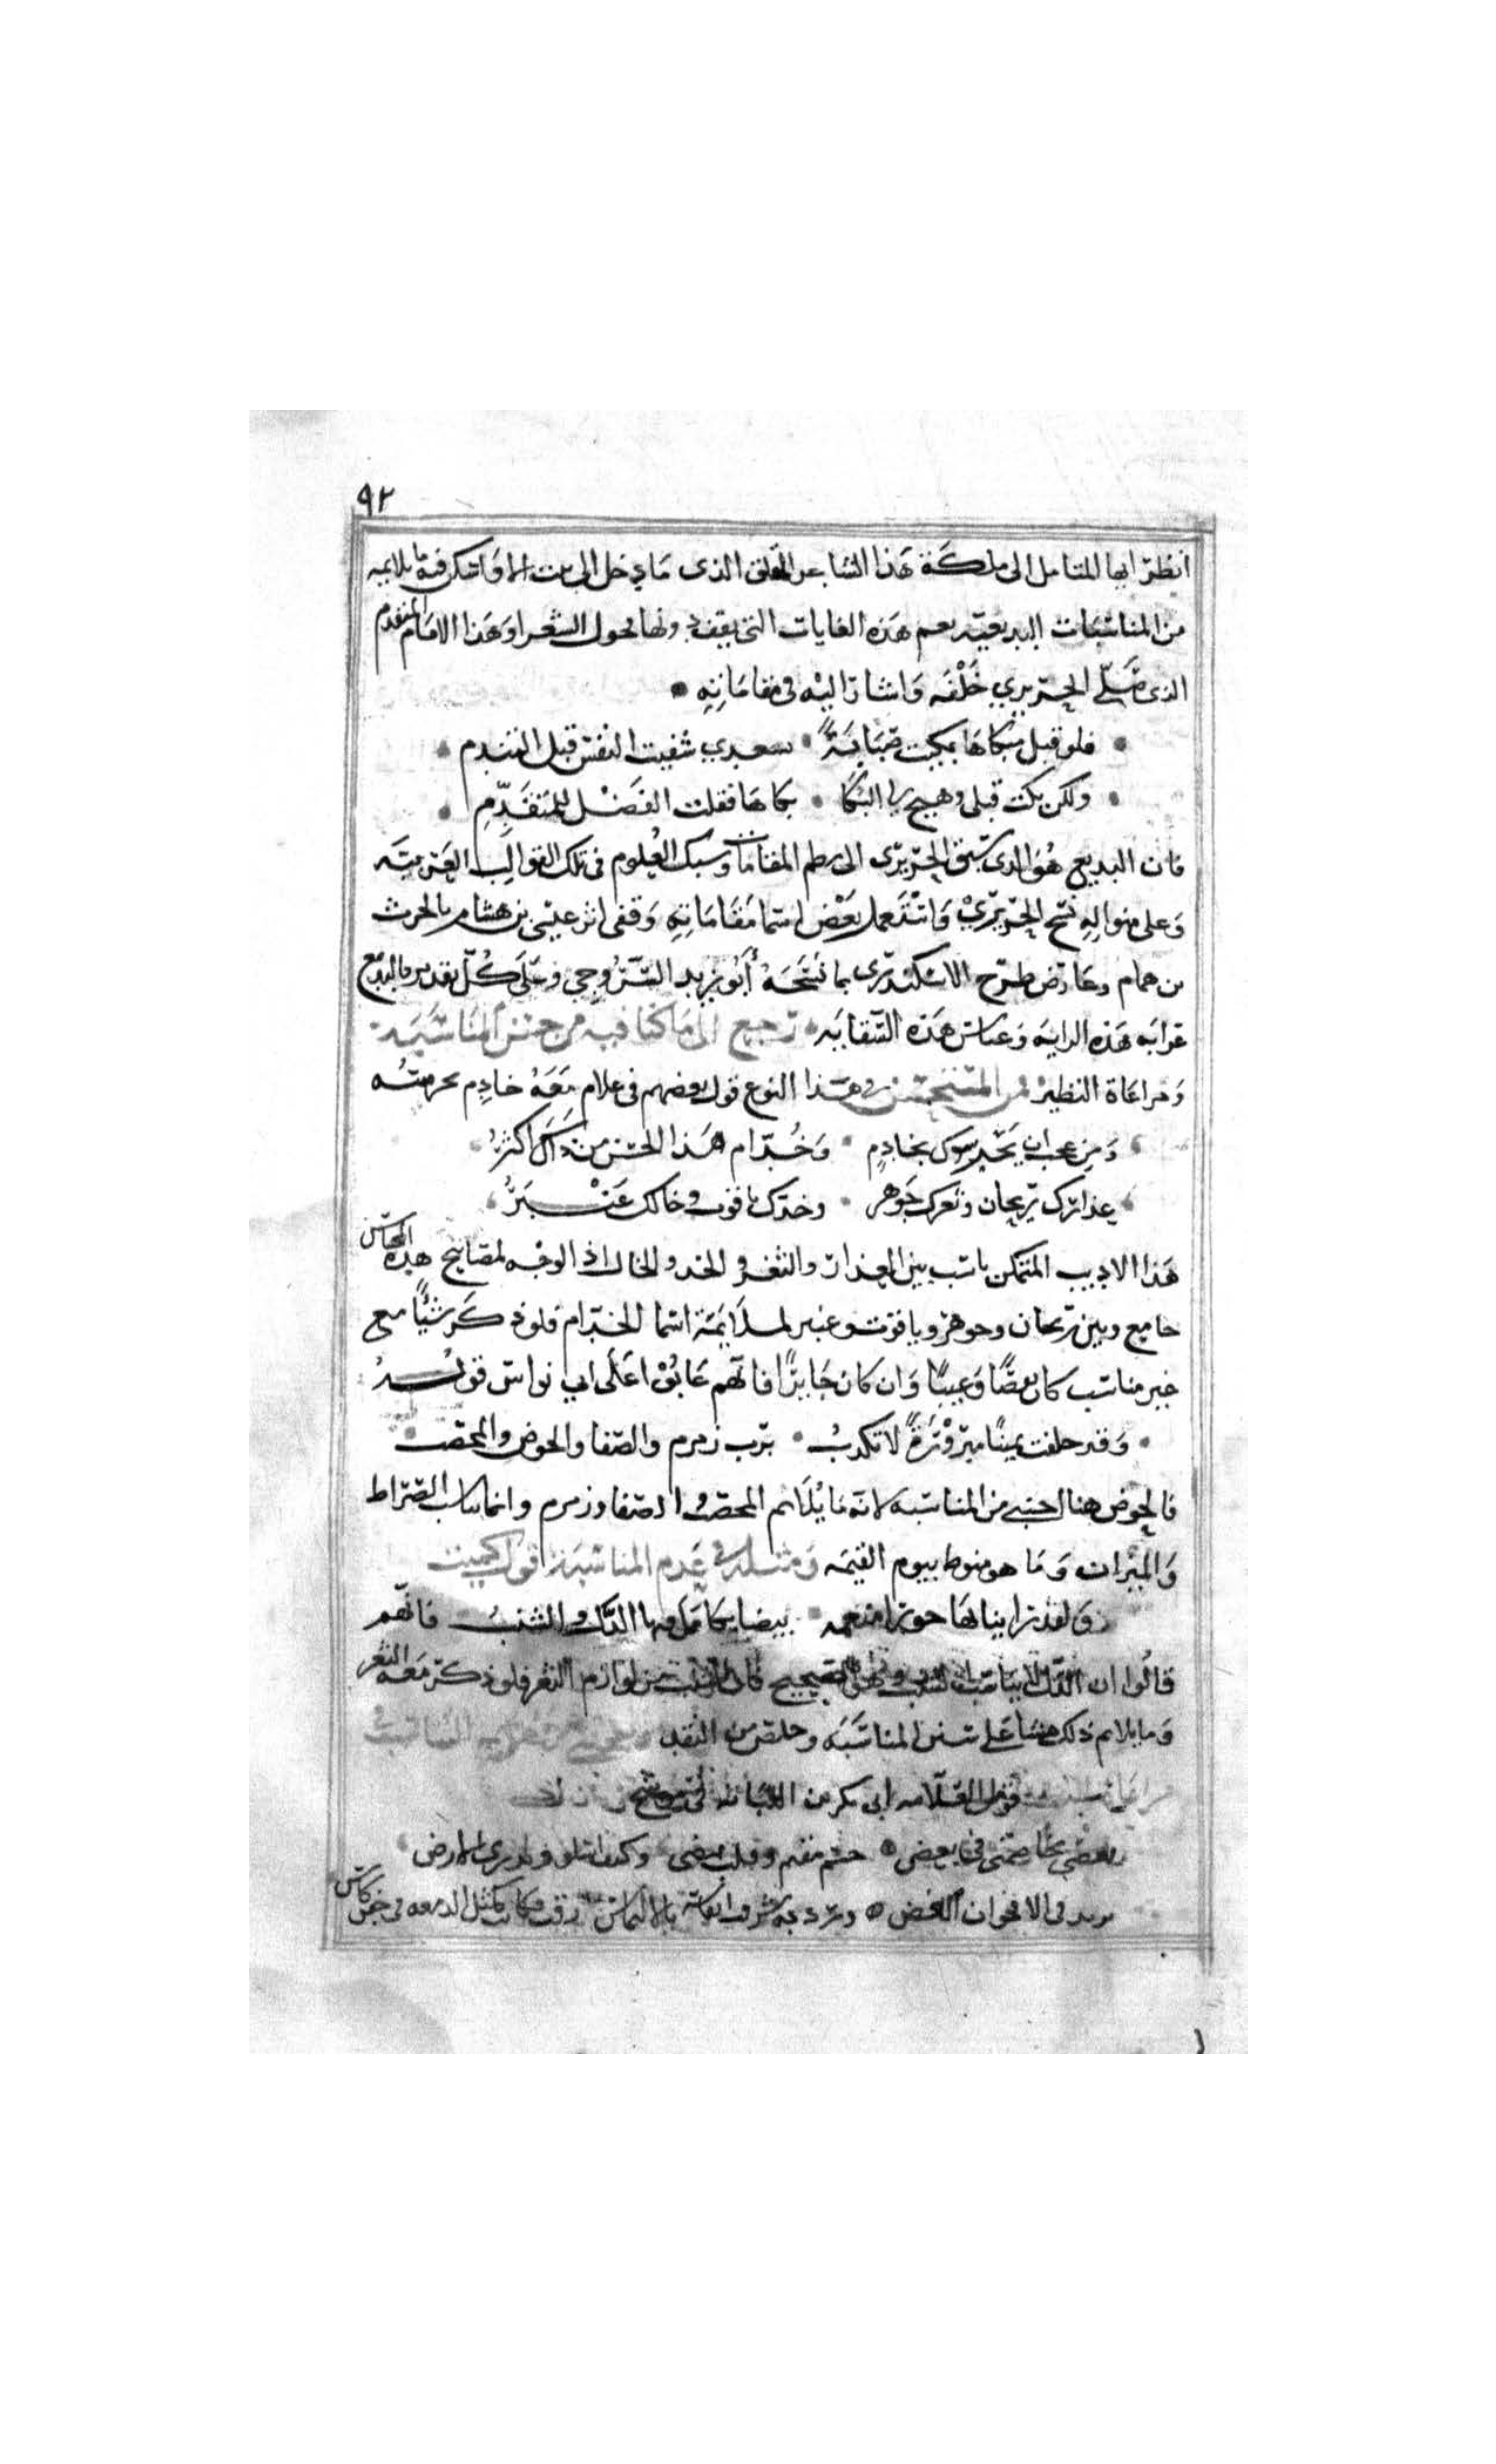 ٩٢
انظر ايها المتامل الى ملكة هذا الشاعر المفلق الذى ما دخل الى بيت الا واسكن فيه ما يلايمه
من المناسبات البديعية نعم هذه الغايات التي يقف دونها فحول الشعرا وهذا الامام المتقدم
الذى صلى الحريري خلفه واشار اليه فى مقاماته
فلو قبل مبكاها بكيت صبابة سعدي شفيت النفس قبل التندم
ولكن بكت قبلى وهيج لى البكا بكاها فقلت الفضل للمتقدم
فان البديع هو الذى سبق الحريرى الى نظم المقامات وسبك العلوم فى تلك القوالب الغريبة
وعلى منواله نسج الحريري واستعمل بعض اسما مقاماته وقفى اثر عيسى بن هشام بالحرث
بن همام وعارض طرح الاسكندرى بما نسجه أبو زيد السروجي وعلى كل تقدير فالبديع
عرابه هذه الرايه وعباس هذه السقايه نرجع الى ما كنا فيه من حسن المناسبة
ومراعاة النظير فمن المستحسن فى هذا النوع قول بعضهم فى غلام معه خادم يحرسه
ومن عجب ان يحرسوك بخادم وخدام هذا الحسن من ذاك اكثر
عذارك ريحان وثغرك جوهر وخدك ياقوت وخالك عنبر
هذا الاديب المتمكن ناسب بين العذار والثغر والخد والخال اذ الوجه لمصابيح هذه المحاسن
جامع وبين ريحان وجوهر وياقوت وعنبر لملايمة اسما الخدام فلو ذكر شيئا مع
غير مناسب كان نقصا وعيبا وان كان جايزا فانهم عابوا على ابي نواس قوله
وقد حلفت يمينا مبرورة لا تكذب برب زمزم والصفا والحوض والمحصب
فالحوض هنا اجنبى من المناسبه لانه ما يلايم المحصب والصفا وزمزم وانما يناسب الصراط
والميزان وما هو منوط بيوم القيمه ومثله فى عدم المناسبة قول الكميت
وقد راينا بها حورا منعمه بيضا تكامل فيها الدل والشنب فانهم
قالوا ان الدل لا يناسب الشنب وهو الصحيح فان الشنب من لوازم الثغر فلو ذكر معه الثغر
وما يلايم ذلك مشا على سنن المناسبه وخلص من النقد
قول العلامه ابى بكر من اللبانه فى موشح
ىعضى
فى الاقحوان الغض كمثل الدمعه فى جفن كاس